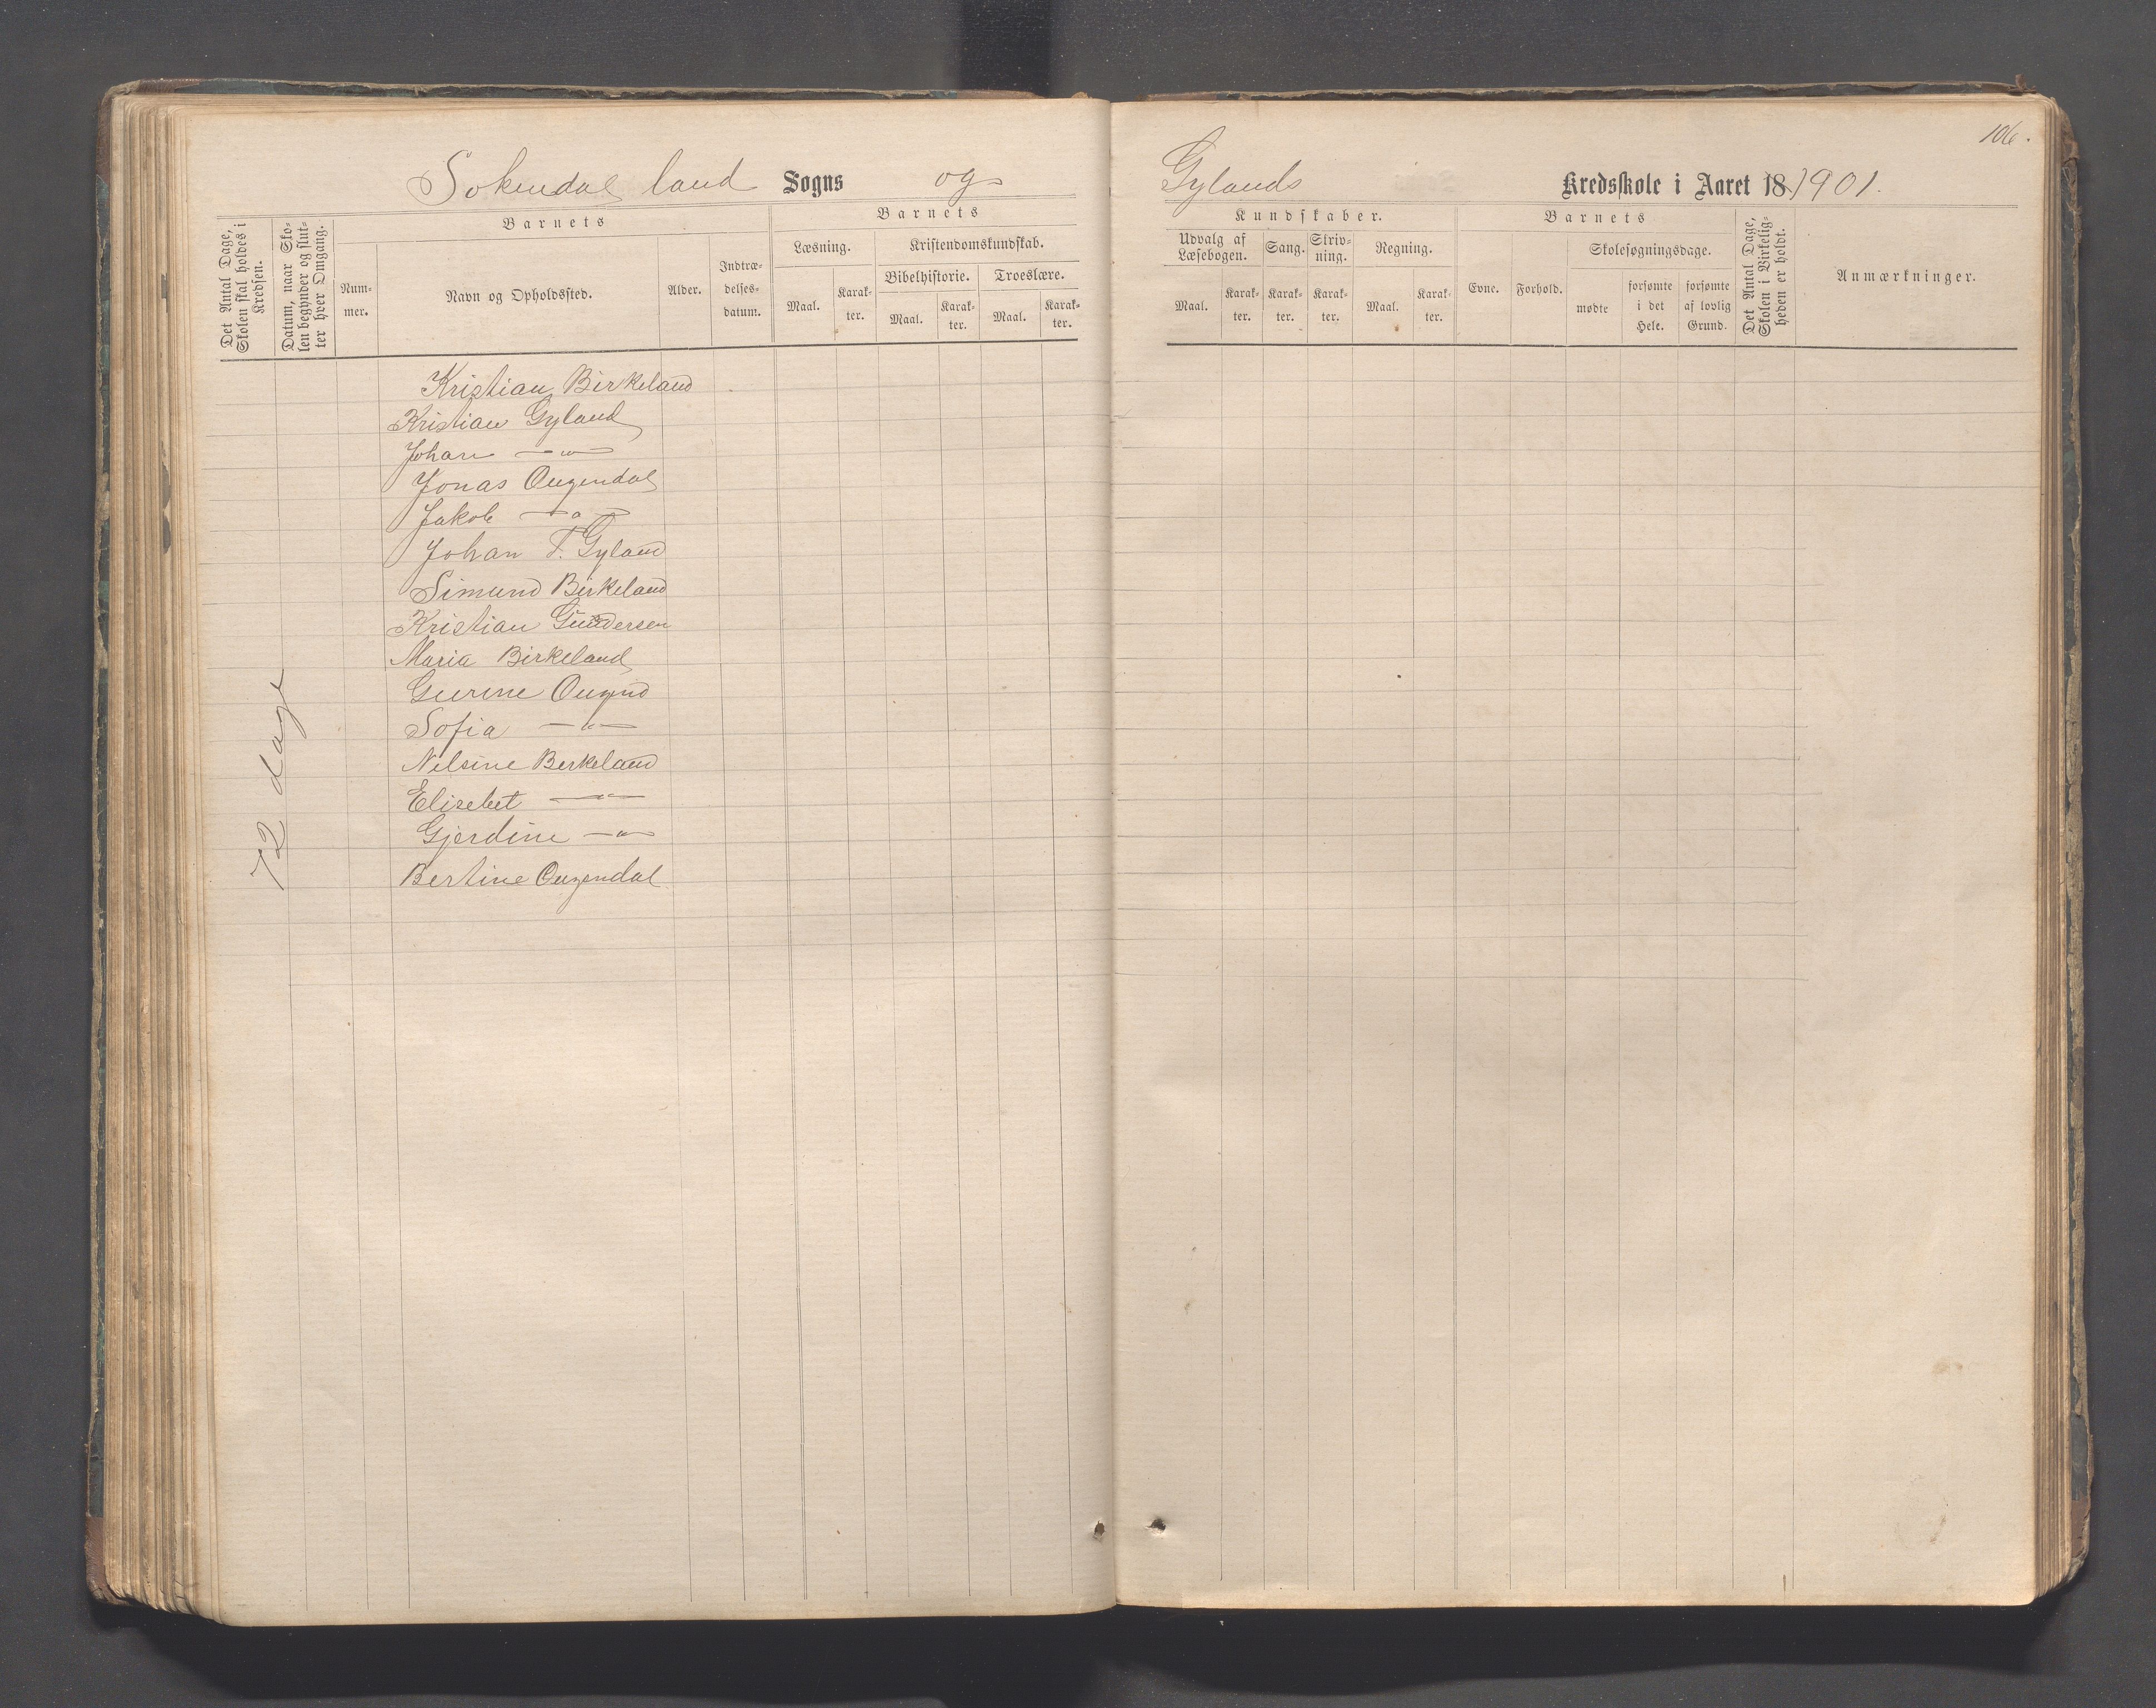 Sokendal land Sogns og
Det Antal Dage, Skolen skal holdes i Kredsen.
Datum, naar Skolen begynder og slutter hver Omgang.
Barnets
Nummer.
Navn og Opholdssted.
Alder.
Indtrædelsesdatum.
Barnets
Læsning.
Maal.
Karakter.
Kristendomskundskab.
Bibelhistorie.
Maal.
Karakter.
Troeslære.
Maal.
Karakter.
Kristian Birkeland
Kristian Gyland
Johan — " —
Jonas Ougendal
Jakob — " —
Johan T. Gyland
Simund Birkeland
Kristian Gundersen
Maria Birkeland
Gurine Ougnd
Sofia — " —
Nelsine Berkeland
Elisebet — " —
Gjerdine — " —
Bertine Ougendal
72 dage
106.
Gylands Kredsskole i Aaret 18 1901.
Kundskaber.
Udvalg af Læsebogen.
Maal.
Karakter.
Sang.
Karakter.
Skrivning.
Karakter.
Regning.
Maal.
Karakter.
Barnets
Evne.
Forhold.
Skolesøgningsdage.
mødte
forsømte i det Hele.
forsømte af lovlig Grund.
Det Antal Dage, Skolen i Virkeligheden er holdt.
Anmærkninger.